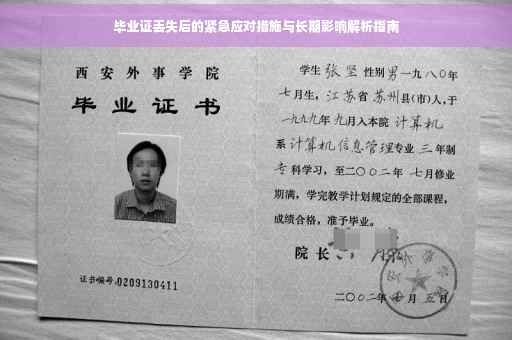 毕业证丢失后的紧急应对措施与长期影响解析指南
西安外事学院
毕业证书
证书编号:0209130411
学生 张坚 性别 男 一九八〇年
七月生, 江苏省 苏州县(市)人, 于
一九九九年 九月入本院 计算机
系 计算机信息管理专业 三 年制
专 科学习, 至二〇〇二年 七月修业
期满, 学完教学计划规定的全部课程,
成绩合格, 准予毕业。
院长
二〇〇二年 月 五日